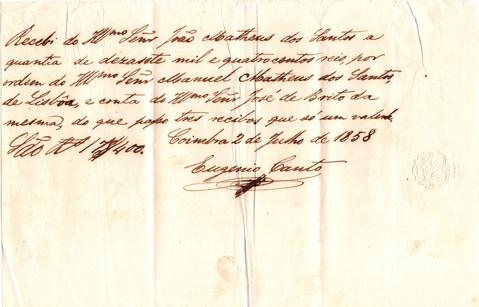 Recebi do Illmo Señr João Matheus dos Santos a
quantia de dezasste mil e quatrocentos reis, por
ordem do Illmo Señr Manuel Matheus dos Santos,
de Lisbôa, e conta do Illmo Señr José de Brito da
mesma, do que passo tres recibos que só um valerá.
São Rs 17$400. Coimbra 2 de Julho de 1858
Eugenio Canto